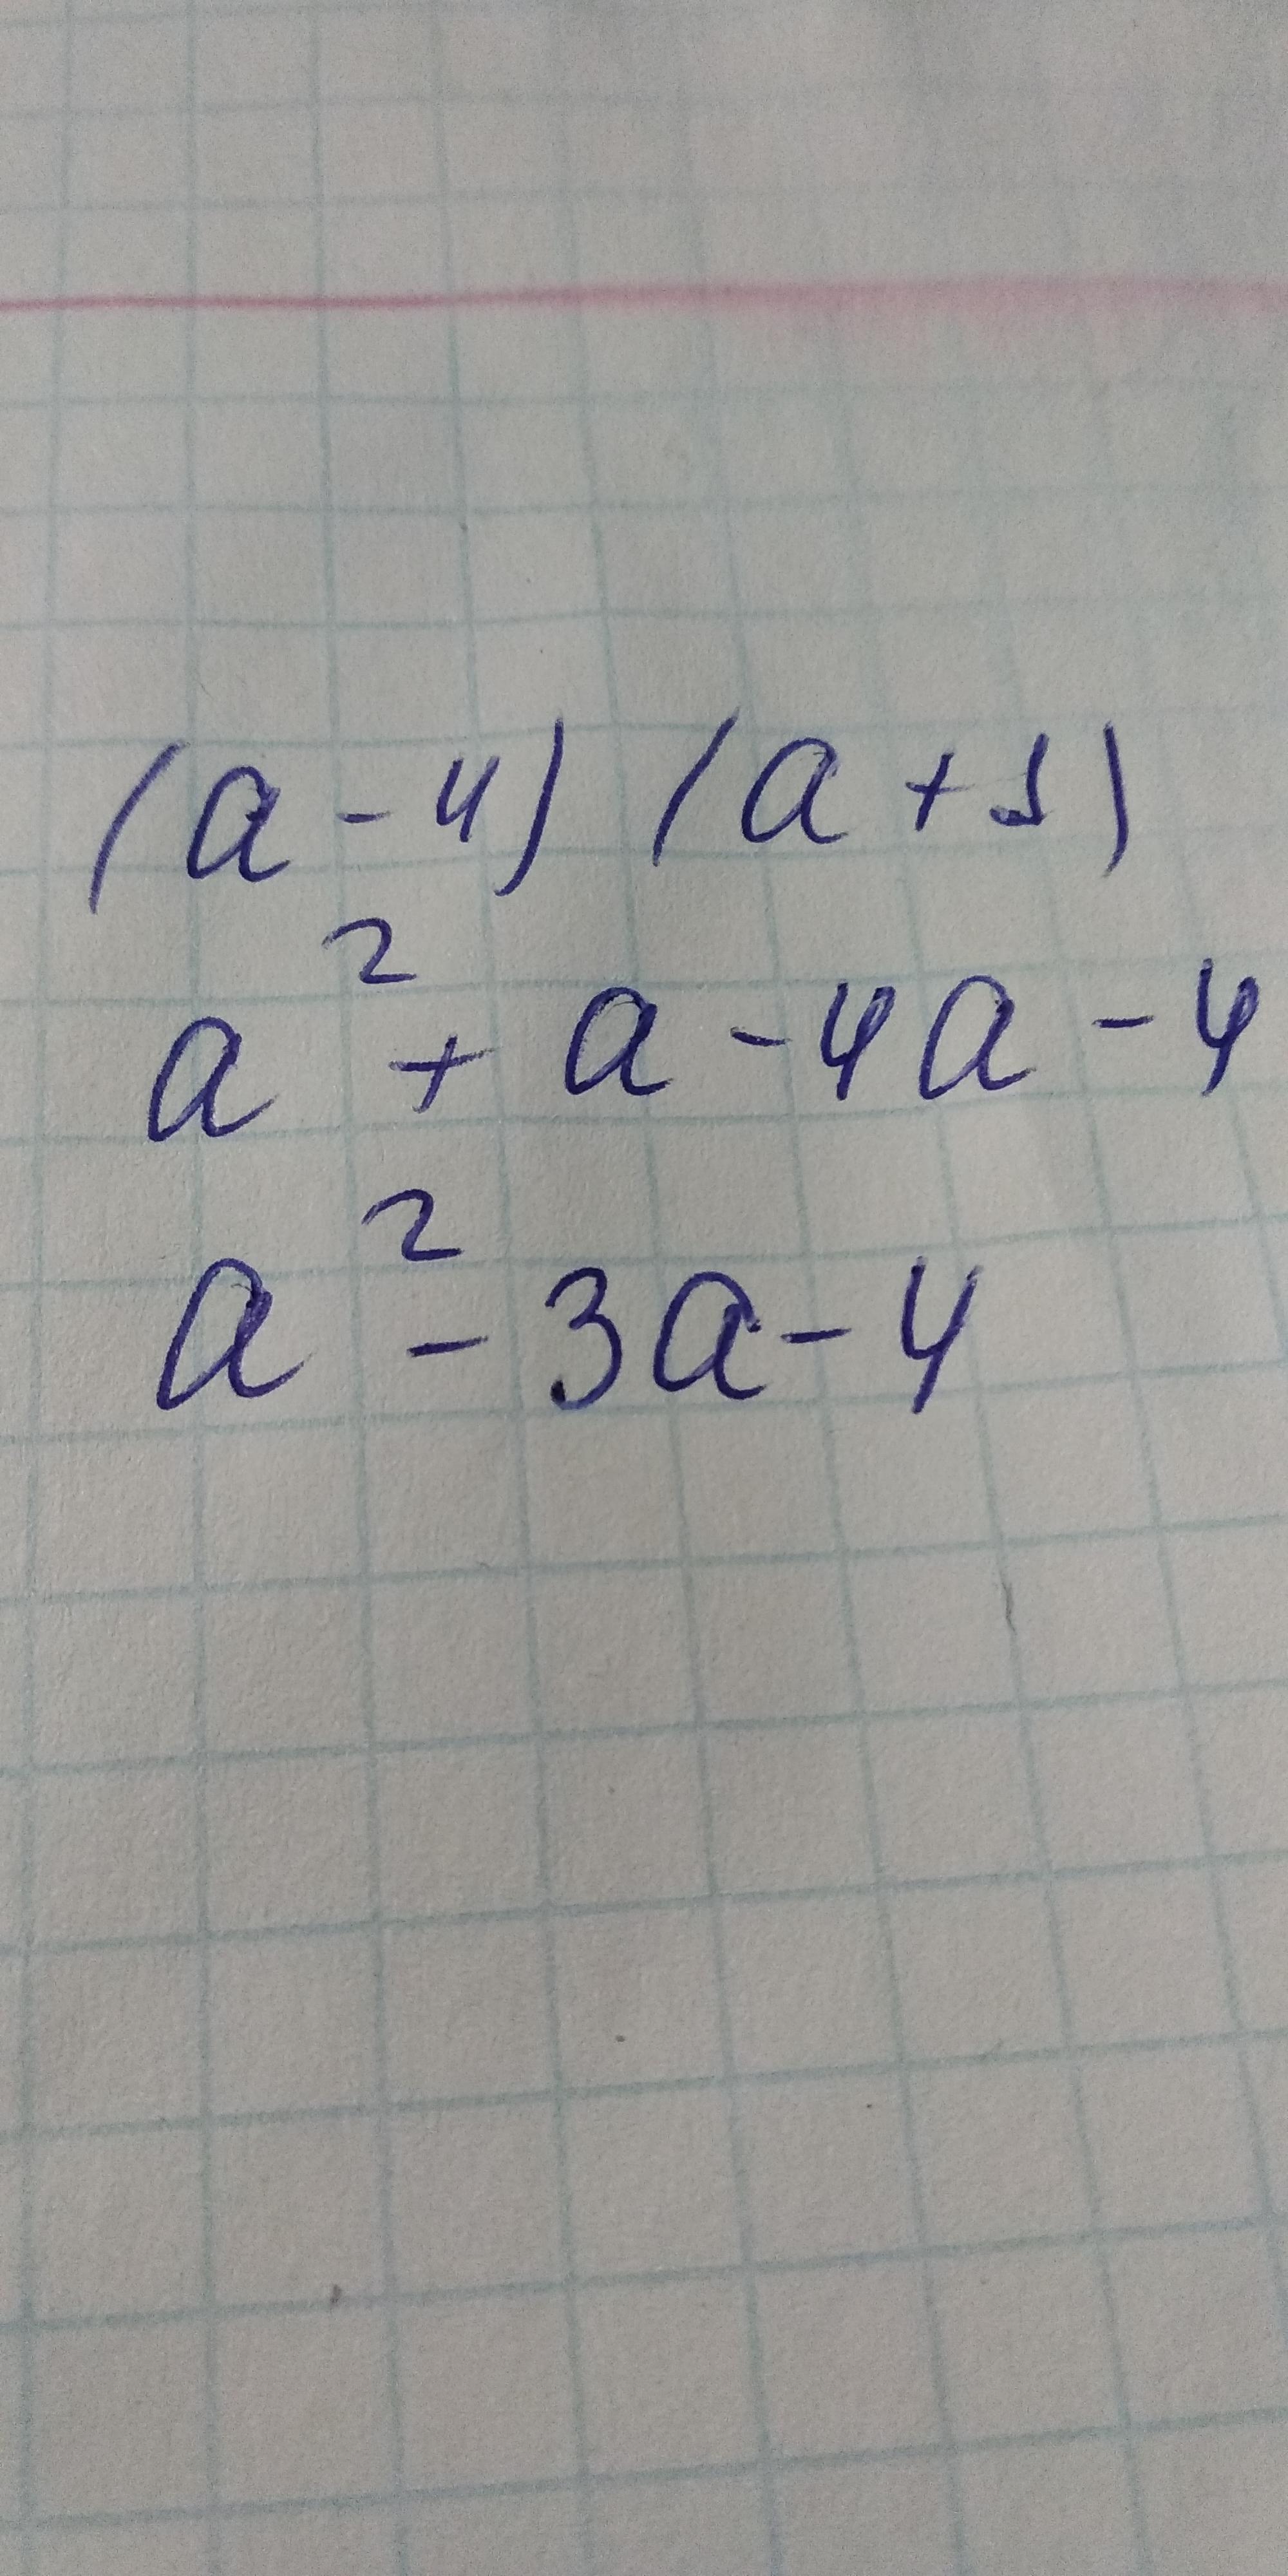 (a - 4) (a + 1)
a² + a - 4a - 4
a² - 3a - 4